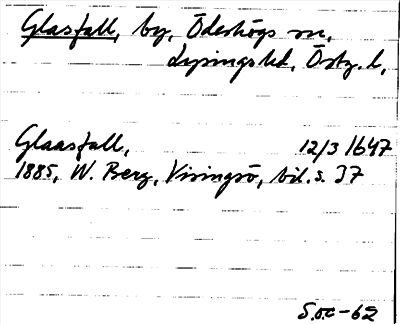 Glasfall, by, Ödeshögs sn,
Lysings hd, Östg. l.
Glaasfall, 12/3 1647
1885, W. Berg, Visingsö, bil. s. 37
S.oc-62